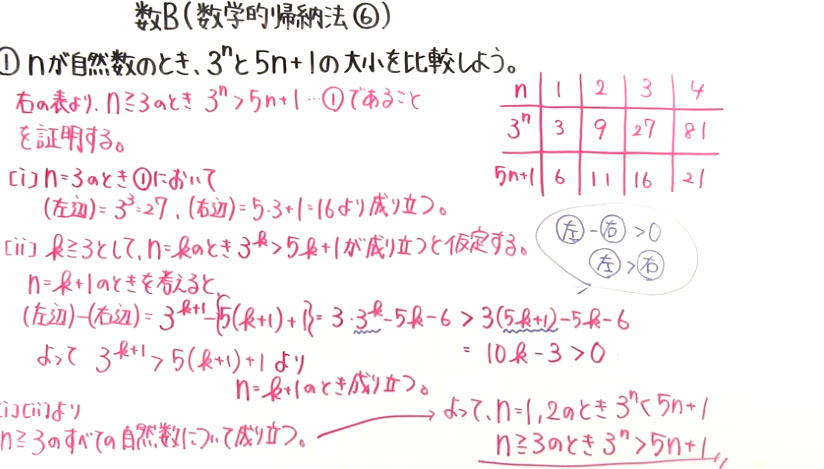 数B(数学的帰納法⑥)
① nが自然数のとき、3^nと5n+1の大小を比較しよう。
右の表より、n≧3のとき 3^n>5n+1…①であること
を証明する。
[i] n=3のとき①において
(左辺)=3^3=27、(右辺)=5・3+1=16より成り立つ。
[ii] k≧3として、n=kのとき3^k>5k+1が成り立つと仮定する。
n=k+1のときを考えると、
(左辺)-(右辺)=3^{k+1}-{5(k+1)+1}=3・3^k-5k-6>3(5k+1)-5k-6
=10k-3>0
よって 3^{k+1}>5(k+1)+1より
n=k+1のとき成り立つ。
[i][ii]より
n≧3のすべての自然数について成り立つ。
よって、n=1,2のとき3^n<5n+1
n≧3のとき3^n>5n+1
n 1 2 3 4
3^n 3 9 27 81
5n+1 6 11 16 21
左-右>0
左>右